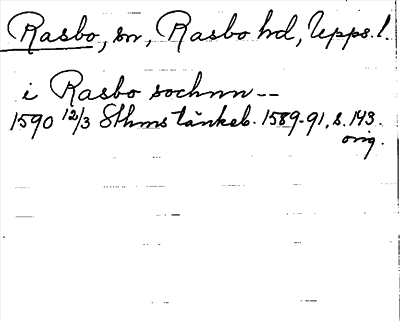 Rasbo, sn, Rasbo hd, Upps. l.
i Rasbo sochnn --
1590 12/3 Sthms tänkeb. 1589-91, s. 143.
orig.